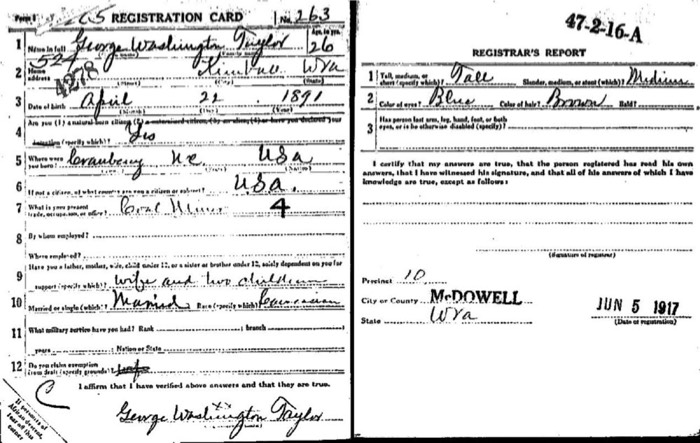 Form 1 REGISTRATION CARD No. 263
1 Name in full George Washington Taylor Age, in yrs. 26
524
2 Home address Kimball W va
4278
3 Date of birth April 22 1891
4 Are you (1) a natural-born citizen
(specify which)? Yes
5 Where were you born? Cranberry N.C. USA
6 If not a citizen, of what country are you a citizen or subject? USA.
7 What is your present trade, occupation, or office? Coal Miner 4
8 By whom employed?
Where employed?
9 Have you a father, mother, wife, child under 12, or a sister or brother under 12, solely dependent on you for
support (specify which)? wife and two child.
10 Married or single (which)? Married Race (specify which)? Caucasian
11 What military service have you had? Rank branch
years Nation or State
12 Do you claim exemption from draft (specify grounds)?
I affirm that I have verified above answers and that they are true.
George Washington Taylor
If person is of African descent, tear off this corner
47-2-16-A
REGISTRAR'S REPORT
1 Tall, medium, or short (specify which)? Tall Slender, medium, or stout (which)? Medium
2 Color of eyes? Blue Color of hair? Brown Bald?
3 Has person lost arm, leg, hand, foot, or both
eyes, or is he otherwise disabled (specify)?
I certify that my answers are true, that the person registered has read his own
answers, that I have witnessed his signature, and that all of his answers of which I have
knowledge are true, except as follows:
(Signature of registrar)
Precinct 10
City or County McDOWELL
State W va
JUN 5 1917
(Date of registration)